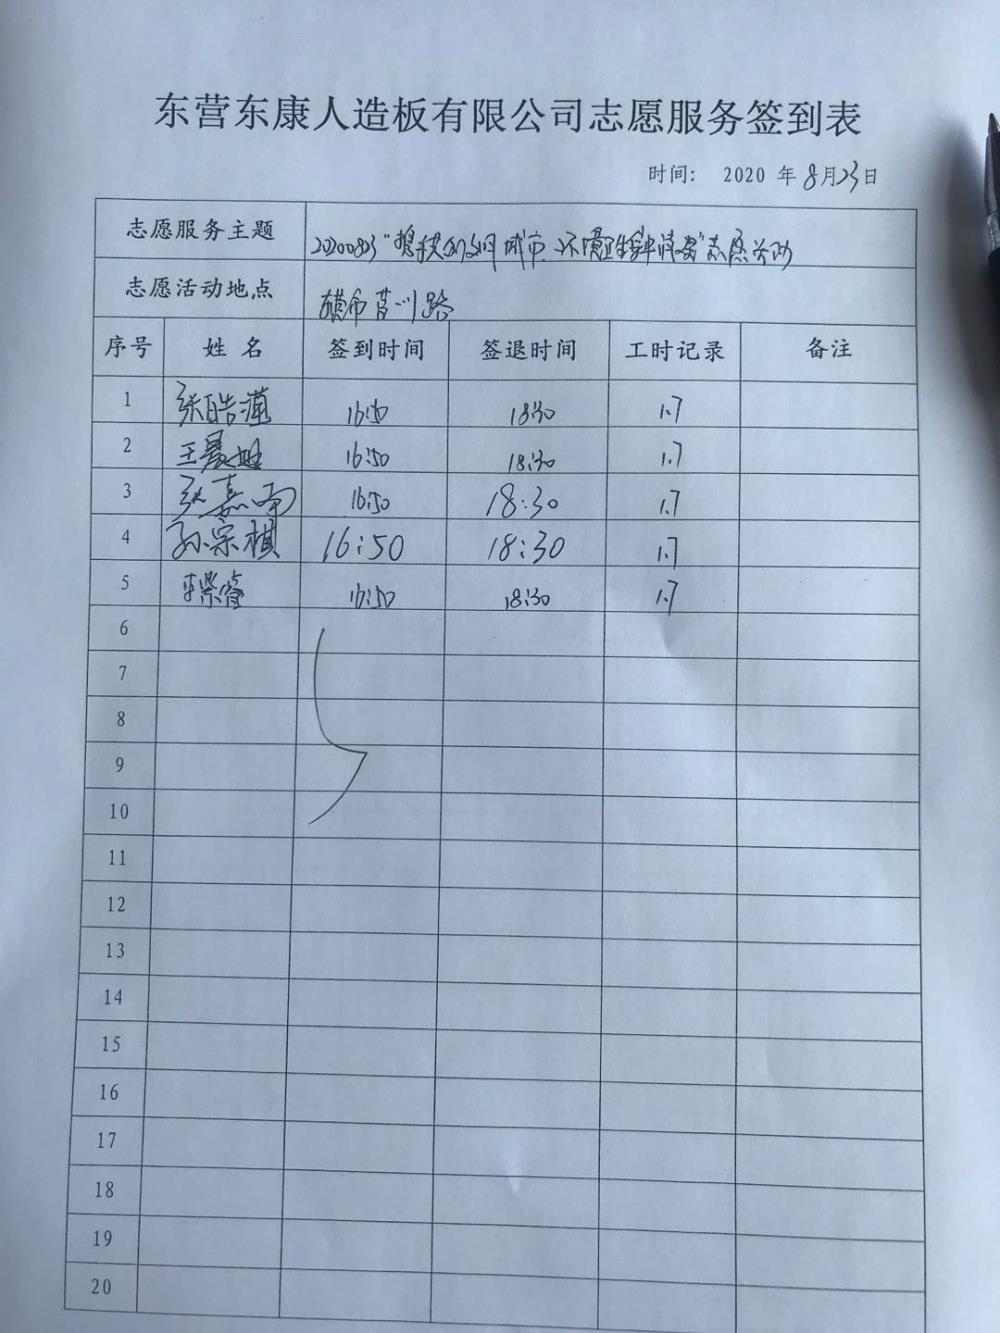 东营东康人造板有限公司志愿服务签到表
时间： 2020 年 8月23日
志愿服务主题 20200823“ 城市 环境卫生 ”志愿活动
志愿活动地点 东营市营川路
序号 姓名 签到时间 签退时间 工时记录 备注
1 张皓 16:50 18:30 1.7
2 王晨旭 16:50 18:30 1.7
3 张嘉雨 16:50 18:30 1.7
4 孙宗祺 16:50 18:30 1.7
5 16:50 18:30 1.7
6
7
8
9
10
11
12
13
14
15
16
17
18
19
20